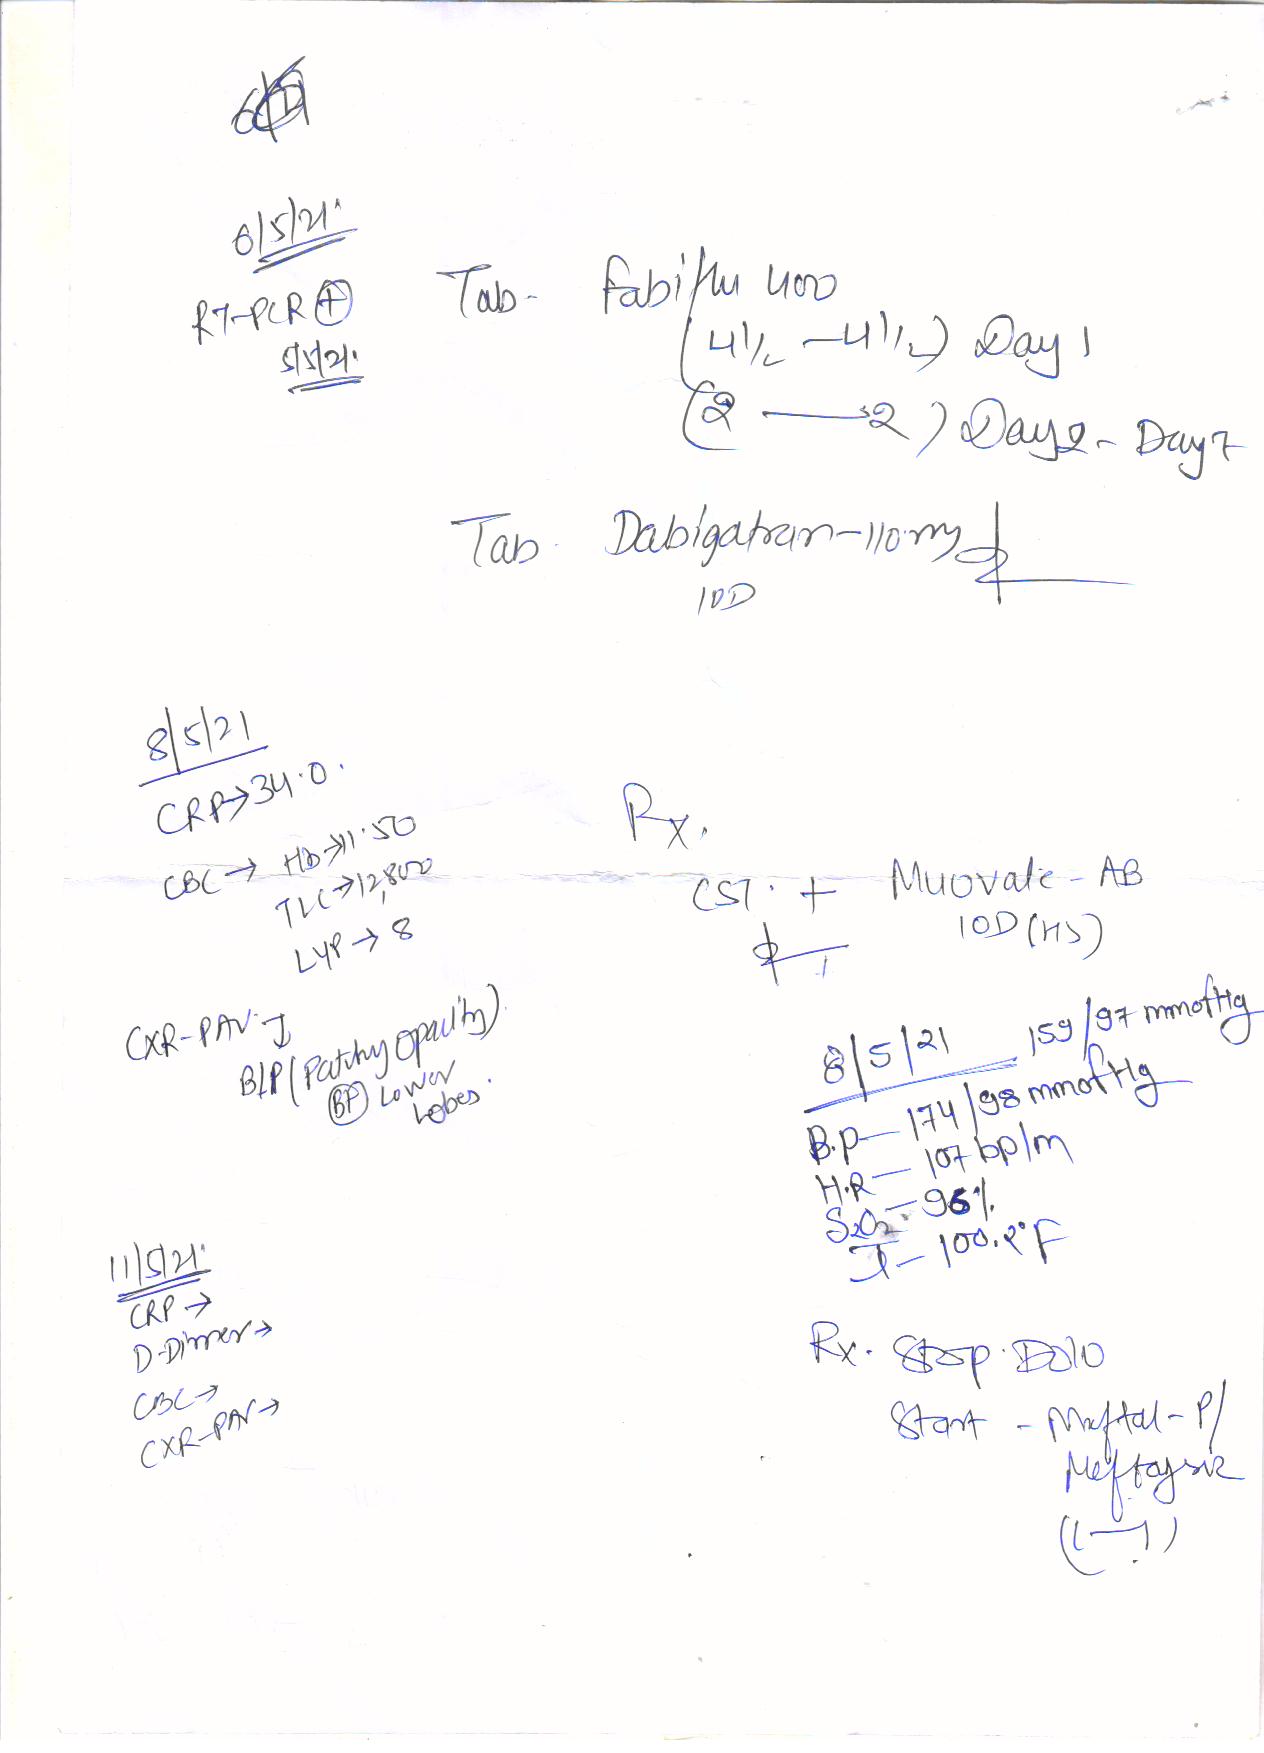 6/5/21
RT-PCR (+)
5/5/21
Tab- Fabiflu 400
(4½ - 4½) Day 1
(2 — 2) Day2 - Day7
Tab. Dabigatran-110mg
10D
8/5/21
CRP → 34.0.
CBC → Hb → 11.50
TLC → 12,800
LYP → 8
CXR-PAV
BLP (Patchy opacity)
Lower
Lobes.
Rx.
CST. + Muovate-AB
10D (HS)
8/5/21 159/97 mmofHg
B.P — 174/98 mmofHg
H.R — 107 bp/m
S2O2 — 96%
T — 100.2°F
11/5/21
CRP →
D-Dimer →
CBC →
CXR-PAV →
Rx. Stop. Dolo
Start - Meftal-P/
(1—1)